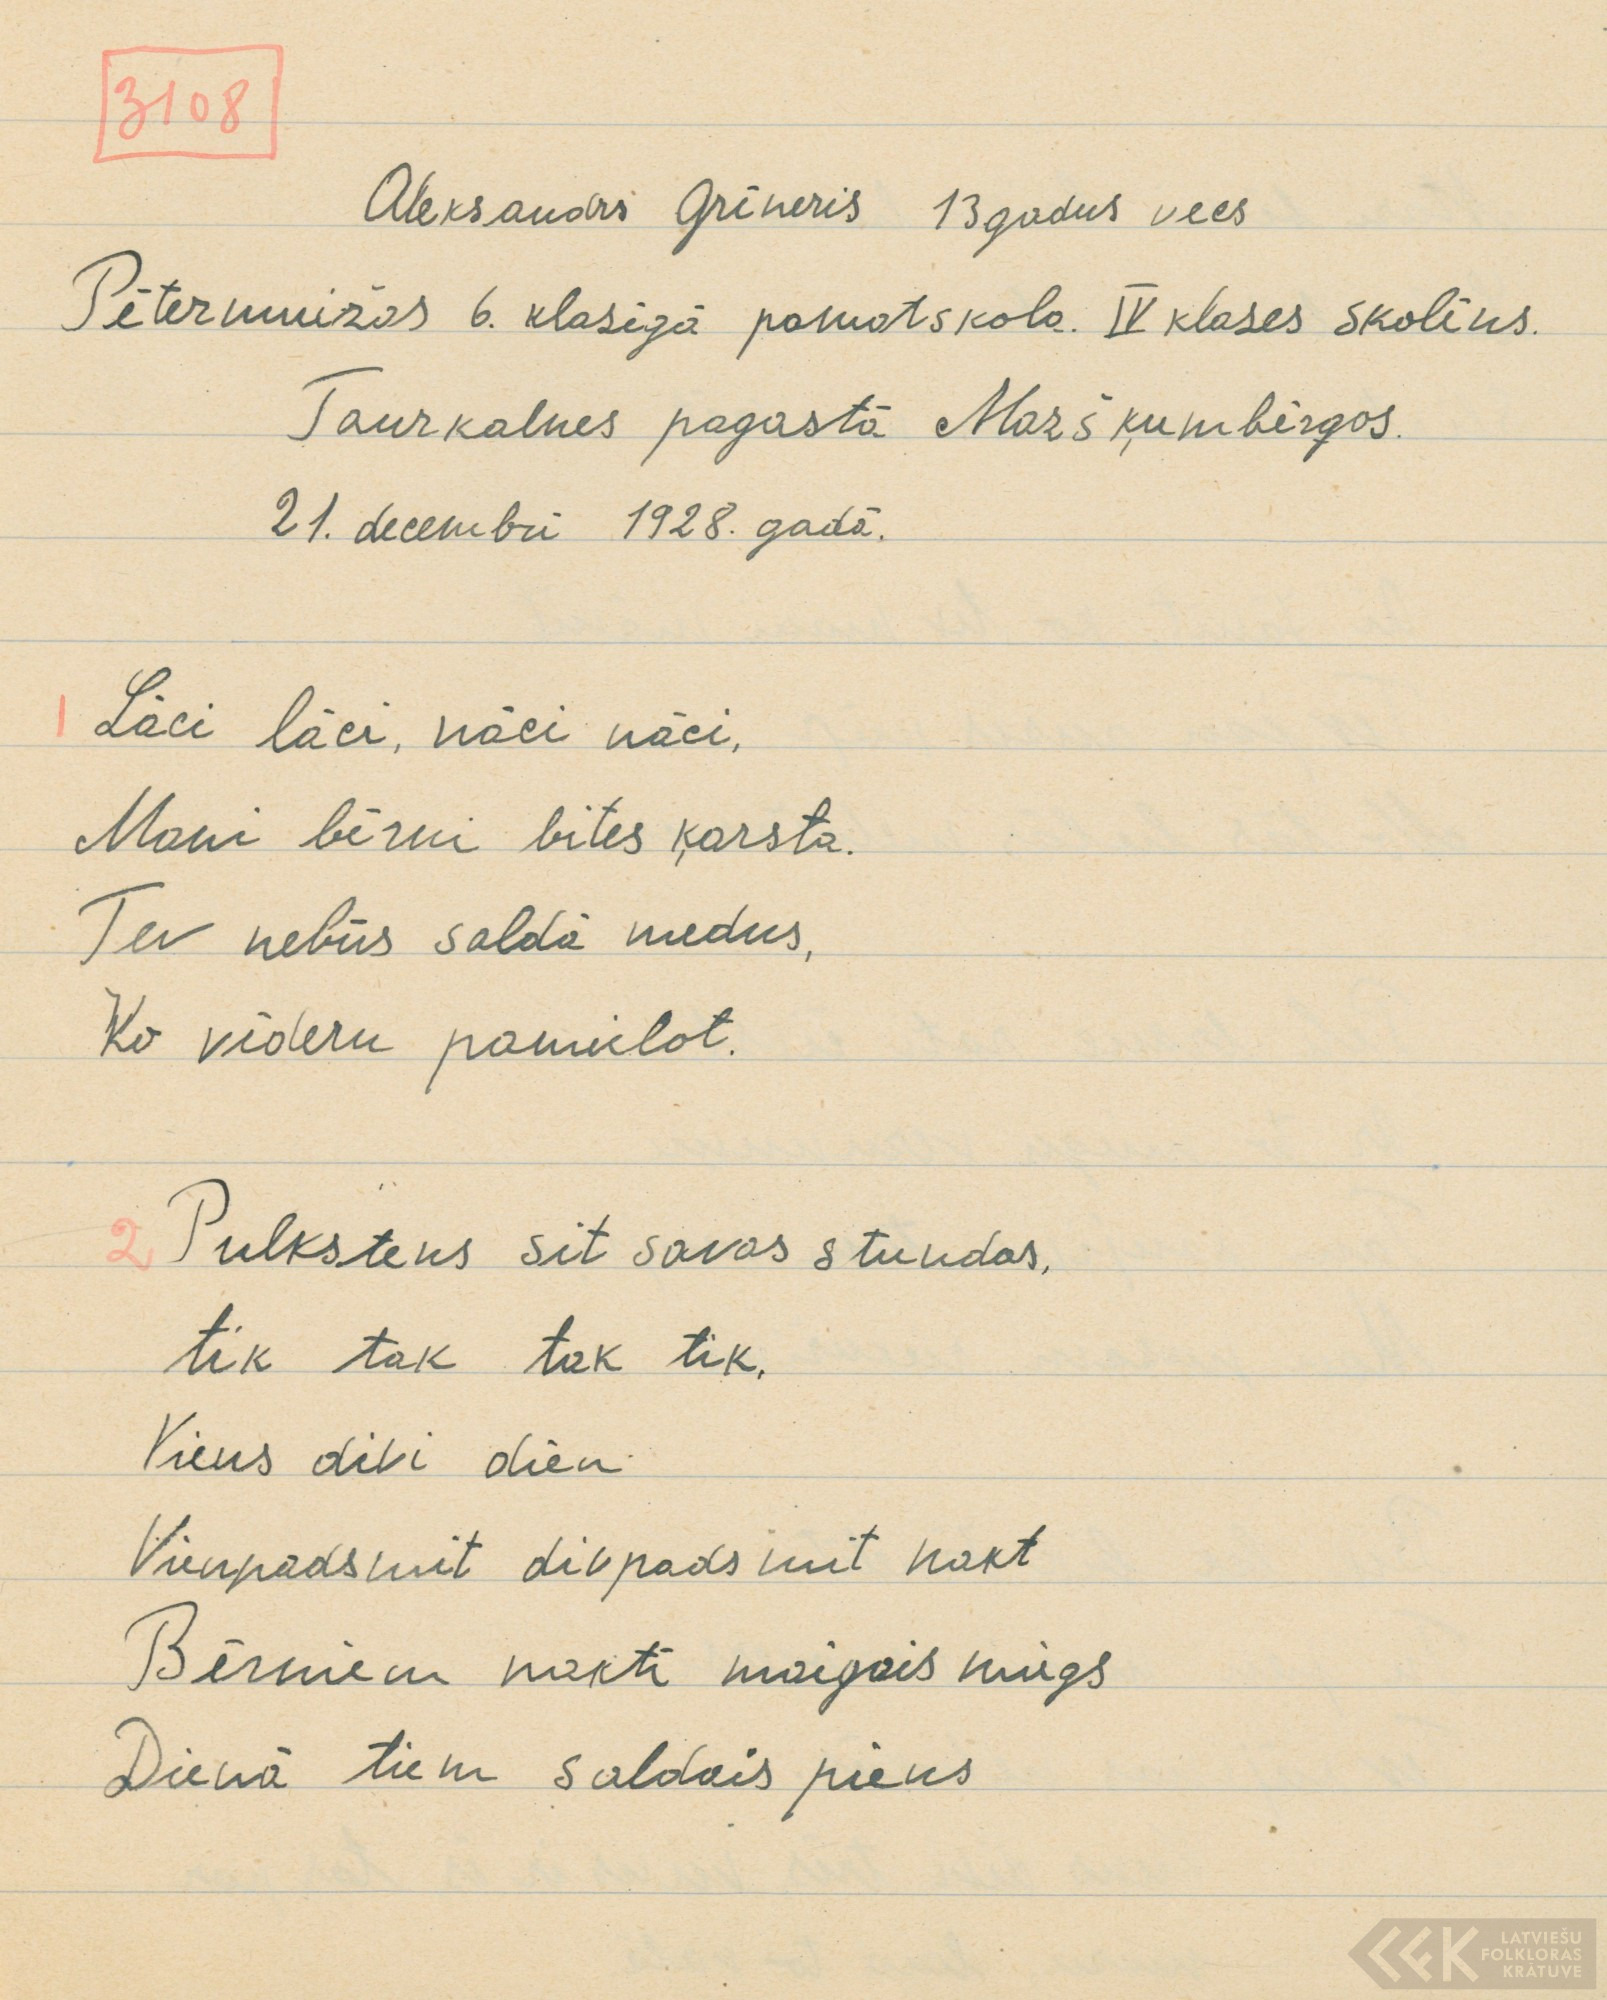 3108
Aleksandrs Grīneris 13 gadus vecs
Pētermuižas 6. klasīgā pamatskola. IV klases skolins.
Taurkalnes pagastā Mazšķumbērgos.
21. decembrī 1928. gadā.
1 Lāci lāci, nāci nāci,
Mani bērni bites ķarsta.
Tev nebūs saldā medus,
Ko vēderu pamielot.
2 Pulkstens sit savas stundas,
tik tak tak tik.
Viens divi dien
Vienpadsmit divpadsmit nakt
Bērniem naktī maigais miegs
Dienā tiem saldais piens
LATVIEŠU
FOLKLORAS
KRĀTUVE